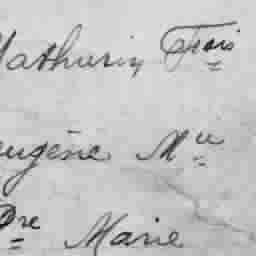 Mathurin Fçois
eugène Mie
Dre Marie